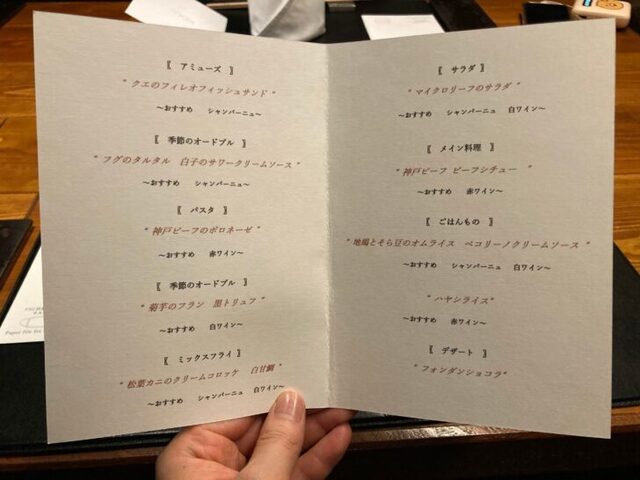 〖 アミューズ 〗
" クエのフィレオフィッシュサンド "
～おすすめ シャンパーニュ～
〖 季節のオードブル 〗
" フグのタルタル 白子のサワークリームソース "
～おすすめ シャンパーニュ～
〖 パスタ 〗
" 神戸ビーフのボロネーゼ "
～おすすめ 赤ワイン～
〖 季節のオードブル 〗
" 菊芋のフラン 黒トリュフ "
～おすすめ 白ワイン～
〖 ミックスフライ 〗
" 松葉カニのクリームコロッケ 白甘鯛 "
～おすすめ シャンパーニュ 白ワイン～
〖 サラダ 〗
" マイクロリーフのサラダ "
～おすすめ シャンパーニュ 白ワイン～
〖 メイン料理 〗
" 神戸ビーフ ビーフシチュー "
～おすすめ 赤ワイン～
〖 ごはんもの 〗
" 地鶏とそら豆のオムライス ペコリーノクリームソース "
～おすすめ シャンパーニュ 白ワイン～
" ハヤシライス "
～おすすめ 赤ワイン～
〖 デザート 〗
" フォンダンショコラ "